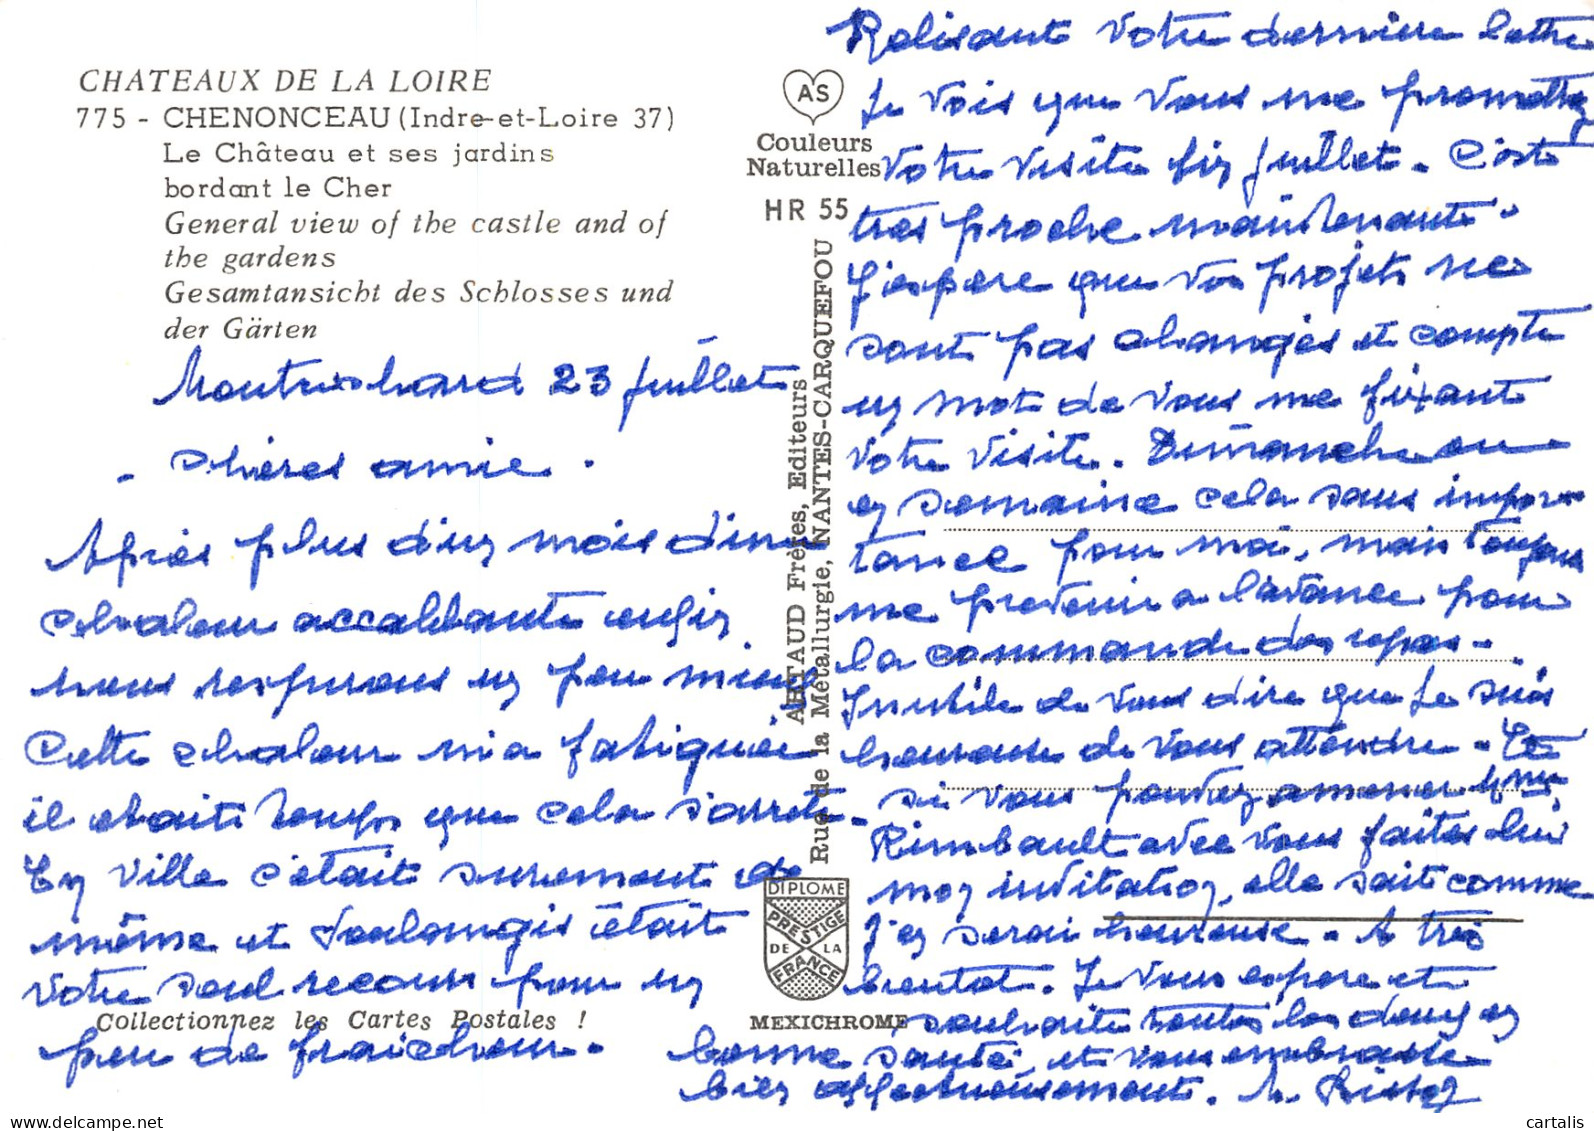 CHATEAUX DE LA LOIRE
775 - CHENONCEAU (Indre-et-Loire 37)
Le Château et ses jardins
bordant le Cher
General view of the castle and of
the gardens
Gesamtansicht des Schlosses und
der Gärten
Montrichard 23 juillet
- Chères amie.
Après plus d'un mois d'une
chaleur accablante enfin
nous respirons un peu mieux
Cette chaleur m'a fatiguée
il était temps que cela s'arrête.
En ville c'était surement de
même et était
votre seul recours pour un
peu de fraicheur.
Collectionnez les Cartes Postales !
AS
Couleurs
Naturelles
HR 55
ARTAUD Frères, Editeurs
Rue de la Métallurgie, NANTES-CARQUEFOU
DIPLOME
PRESTIGE
DE LA
FRANCE
MEXICHROME
Relisant votre dernière lettre
je vois que vous me promettez
votre visite fin juillet. C'est
très proche maintenant.
J'espère que vos projets ne
sont pas changés et compte
un mot de vous me fixant
votre visite. Dimanche ou
en semaine cela sans impor-
tance pour moi, mais toujours
me prévenir a l'avance pour
la commande des repas.
Inutile de vous dire que je suis
heureuse de vous attendre. Et
si vous pouvez amener Mme
Rimbault avec vous faites lui
mon invitation, elle sait comme
j'en serai heureuse. A très
bientot. Je vous espère et
souhaite toutes les deux en
bonne santé, et vous embrasse
bien affectueusement.